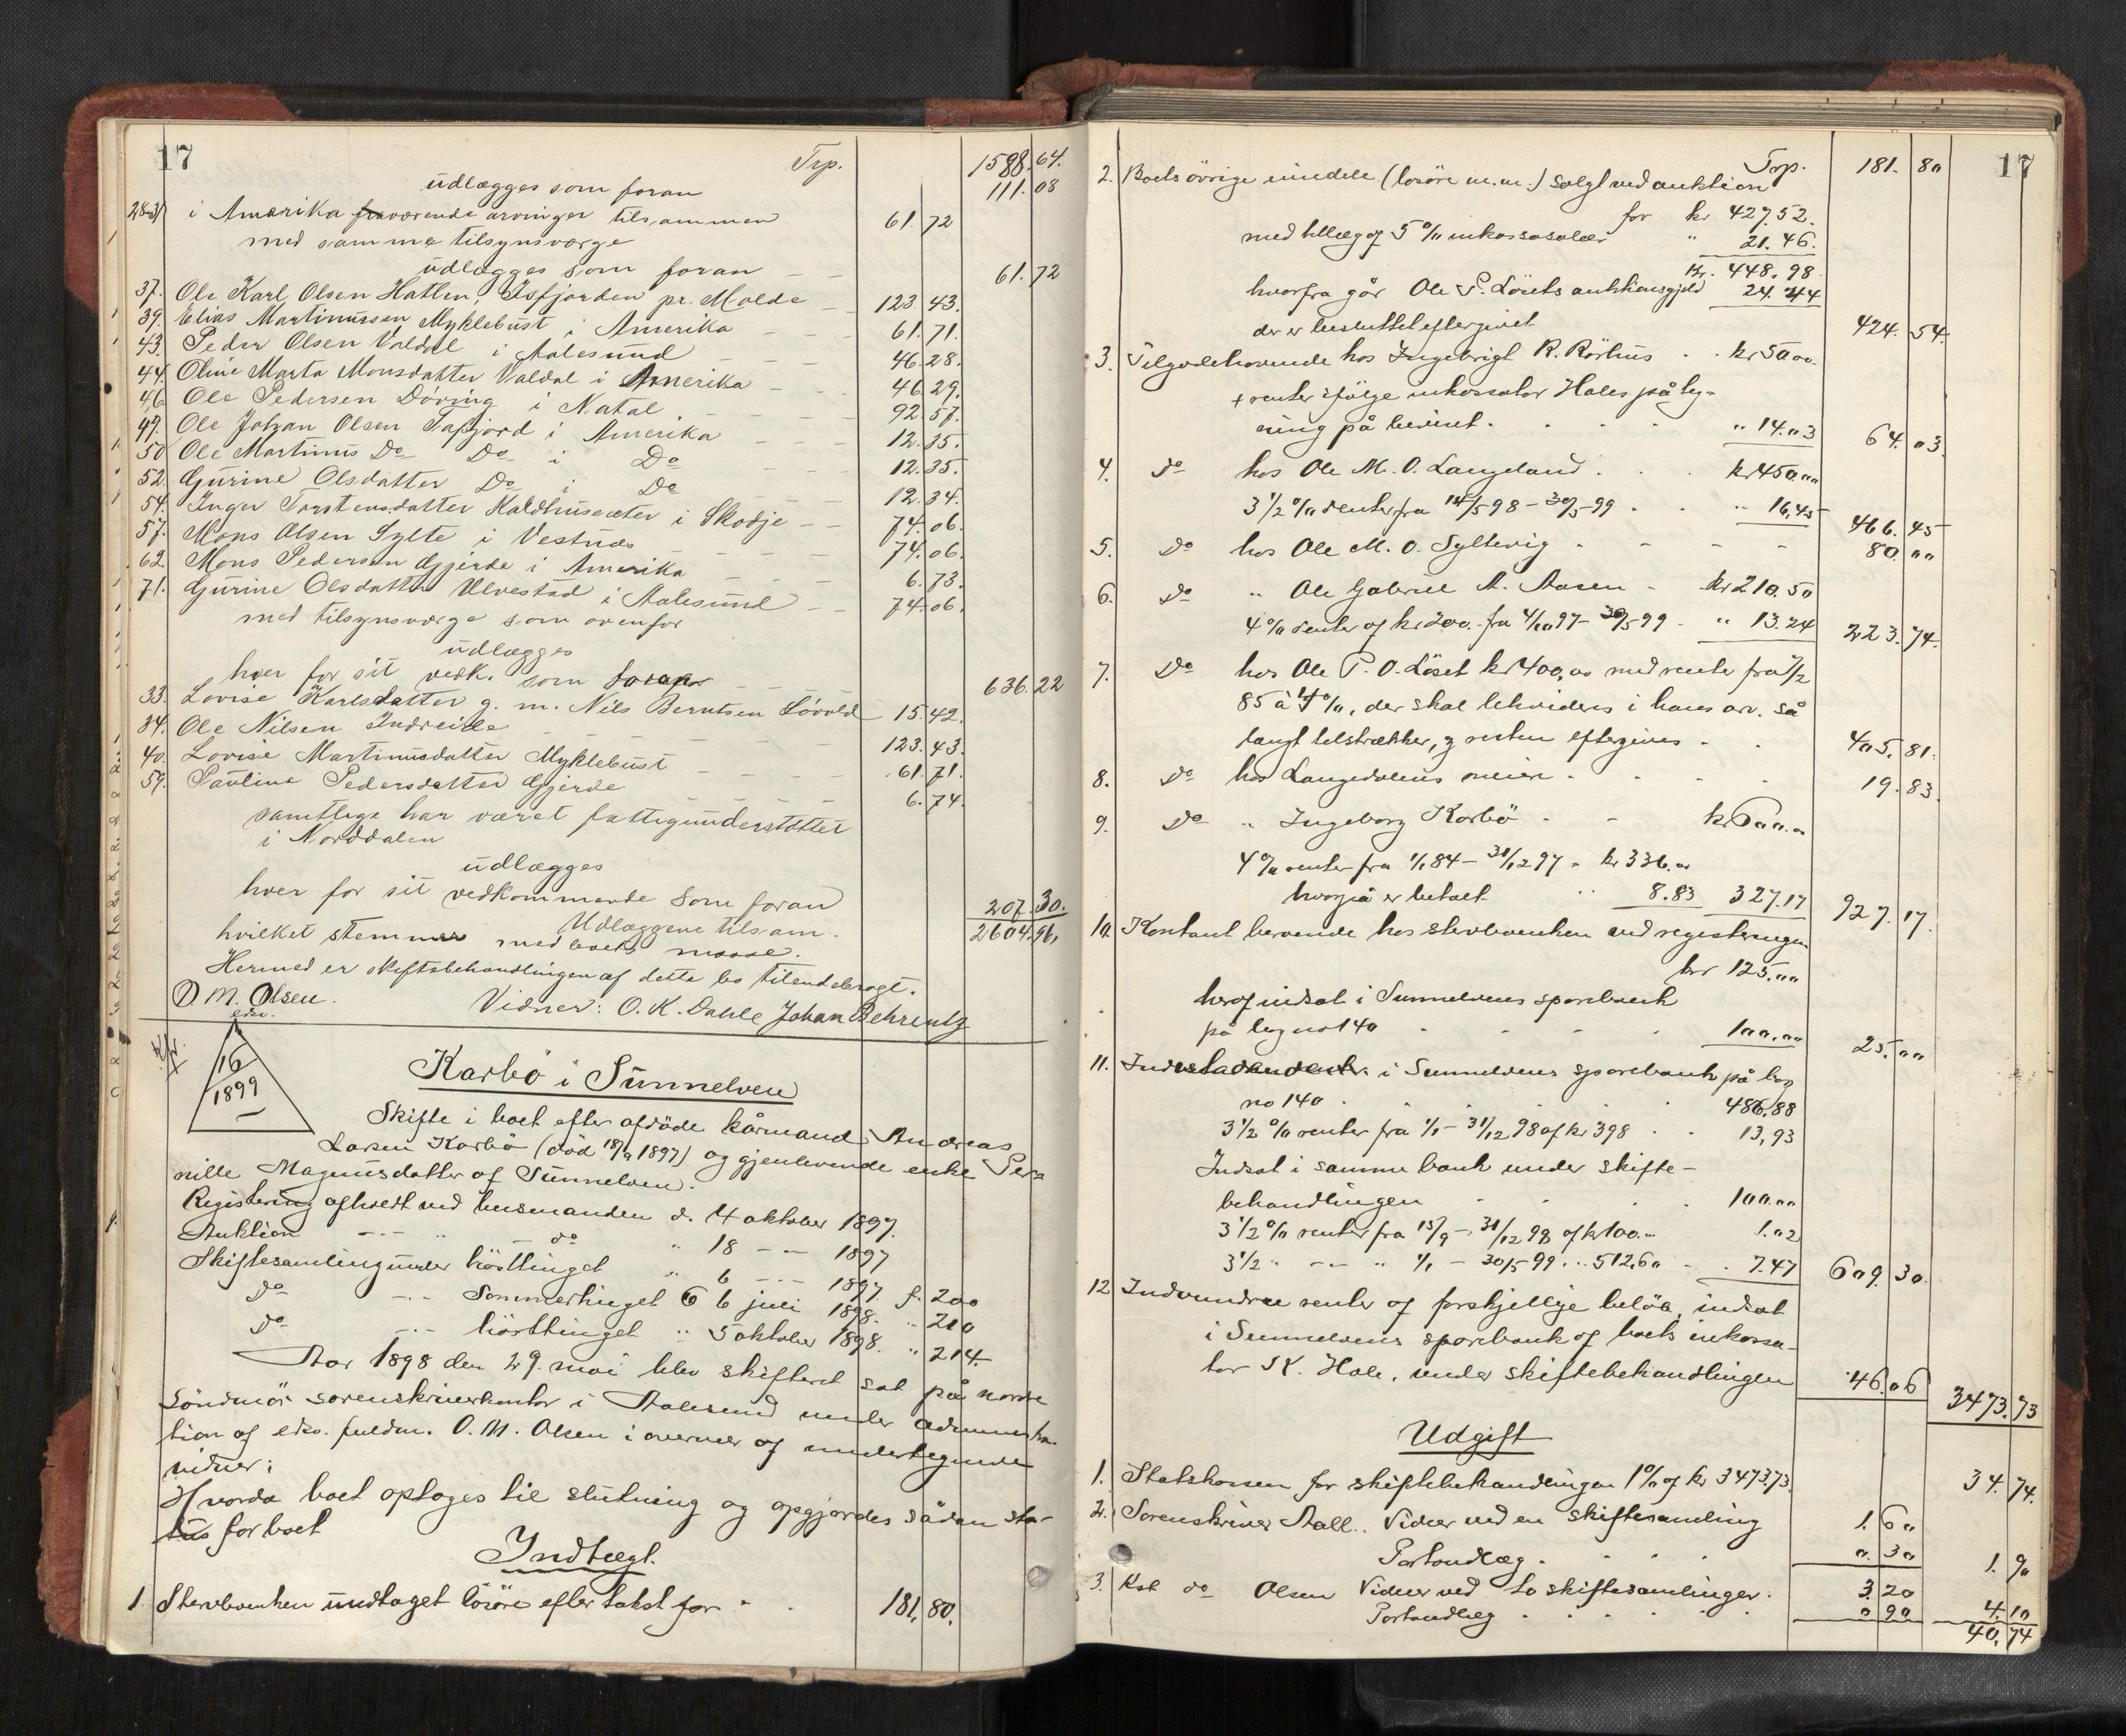 17
Trp. 1588.64.
udlægges som foran 111.08
28-31 i Amerika fraværende arvinger tilsammen 61.72
med samme tilsynsværge
udlægges som foran 61.72
37. Ole Karl Olsen Hatlen, Isfjorden pr. Molde 123.43.
39. Elias Martinussen Myklebust i Amerika 61.71.
43. Peder Olsen Valdal i Aalesund 46.28.
44. Oline Marta Monsdatter Valdal i Amerika 46.29.
46. Ole Pedersen Döving i Natal 92.57.
49. Ole Johan Olsen Tafjord i Amerika 12.35.
50 Ole Martinus Do Do i Do 12.35.
52. Gurine Olsdatter Do i Do 12.34.
54. Inger Torstensdatter Kaldhusæter i Skodje 74.06.
57. Mons Olsen Sylte i Vestnæs 74.06.
62. Mons Pedersen Gjerde i Amerika 6.73.
71. Gurine Olsdatter Ulvestad i Aalesund 74.06.
med tilsynsværge som ovenfor
udlægges
hver for sit vedk. som foran 636.22
33. Lovise Karlsdatter g. m. Nils Berntsen Lövold 15.42.
34. Ole Nilsen Indreide 123.43.
40. Lovise Martinusdatter Myklebust 61.71.
59. Pauline Pedersdatter Gjerde 6.74.
samtlige har været fattigunderstöttet
i Norddalen
udlægges
hver for sit vedkommende som foran 207.30.
Udlæggene tilsam. 2604.96.
hvilket stemmer med boets masse.
Hermed er skiftebehandlingen af dette bo tilendebragt.
O M. Olsen. Vidner: O. K. Dahle Johan Behrentz
edsv.
16
1899
Karbö i Sunnelven
Skifte i boet efter afdöde kårmand Andreas
Larsen Korbö (död 18/9 1897) og gjenlevende enke Per-
nille Magnusdatter af Sunnelven.
Registering afholdt ved lensmanden d. 4 oktober 1897.
Auktion do " 18 1897
Skiftesamling under hösttinget " 6 1897 f. 200
do Sommertinget 6 juli 1898. " 210
do hösttinget " 5 oktober 1898. " 214.
Aar 1898 den 29. mai blev skifteret sat på nordre
Söndmör sorenskriverkontor i Aalesund under administra-
tion af edsv. fuldm. O. M. Olsen i overvær af undertegnede
vidner:
Hvorda boet optoges til slutning og opgjordes sådan sta-
tus for boet
Indtægt.
1 Stervboenken undtaget lösöre efter takst for 181.80.
17
Trp. 181.80
2. Boets övrige eiendele (lösöre m.m.) solgt ved auktion
for kr 427.52.
med tillæg af 5 % inkassosalær " 21.46.
Kr. 448.98.
hvorfra går Ole P. Lösets auktionsgjeld 24.44
der er besluttet eftergivet 424.54.
3. Tilgodehavende hos Ingebrigt R. Rörhus kr 50.00.
+ renter ifölge inkassator Holes påteg-
ning på beviset. " 14.03 64.03.
4. do hos Ole M. O. Langeland. kr 450.00
3 1/2 % renter fra 14/5 98 - 30/5 99 " 16.45 466.45
5. Do hos Ole M. O. Syltevig 80.00
6. Do " Ole Gabriel A. Aasen kr 210.50
4 % renter af kr 200. fra 4/10 97 - 30/5 99 " 13.24 223.74.
7. Do hos Ole P. O. Löset kr 400,00 med rente fra 1/2
85 à 4 %, der skal likvideres i hans arv. så
langt tilstrækker, og resten eftergives 405.81.
8. Do hos Langedalens meieri 19.83.
9. Do " Ingeborg Korbö kr 600.00
4 % renter fra 1/1 84 - 31/12 97 kr 336.00
hvorpå er betalt " 8.83 327.17 927.17.
10. Kontant beroende hos stervboenken ved registeringen
kr 125.00
heraf indsat i Sunnelvens sparebank
på bog no 140 100.00 25.00
11. Indestaaende i Sunnelvens sparebank på bog
no 140 486.88
3 1/2 % renter fra 1/1 - 31/12 98 af kr 398 13,93
Indsat i samme bank under skifte-
behandlingen 100.00
3 1/2 % renter fra 15/9 - 31/12 98 af kr 100.00 1.02
3 1/2 " " 1/1 - 30/5 99 " 512.60 7.47 609.30.
12 Indvundne renter af forskjellige beløb, indsat
i Sunnelvens sparebank af boets inkassa-
tor K. Hole, under skiftebehandlingen 46.06 3473.73
Udgift
1. Statskassen for skiftebehandlingen 1 % af kr 3473.73. 34.74.
2. Sorenskriver Aall. Vidner ved en skiftesamling 1.60
Portoudlæg. 0.30 1.90
3. Kst do Olsen Vidner ved to skiftesamlinger. 3.20
Portoudlæg 0.90 4.10
40.74